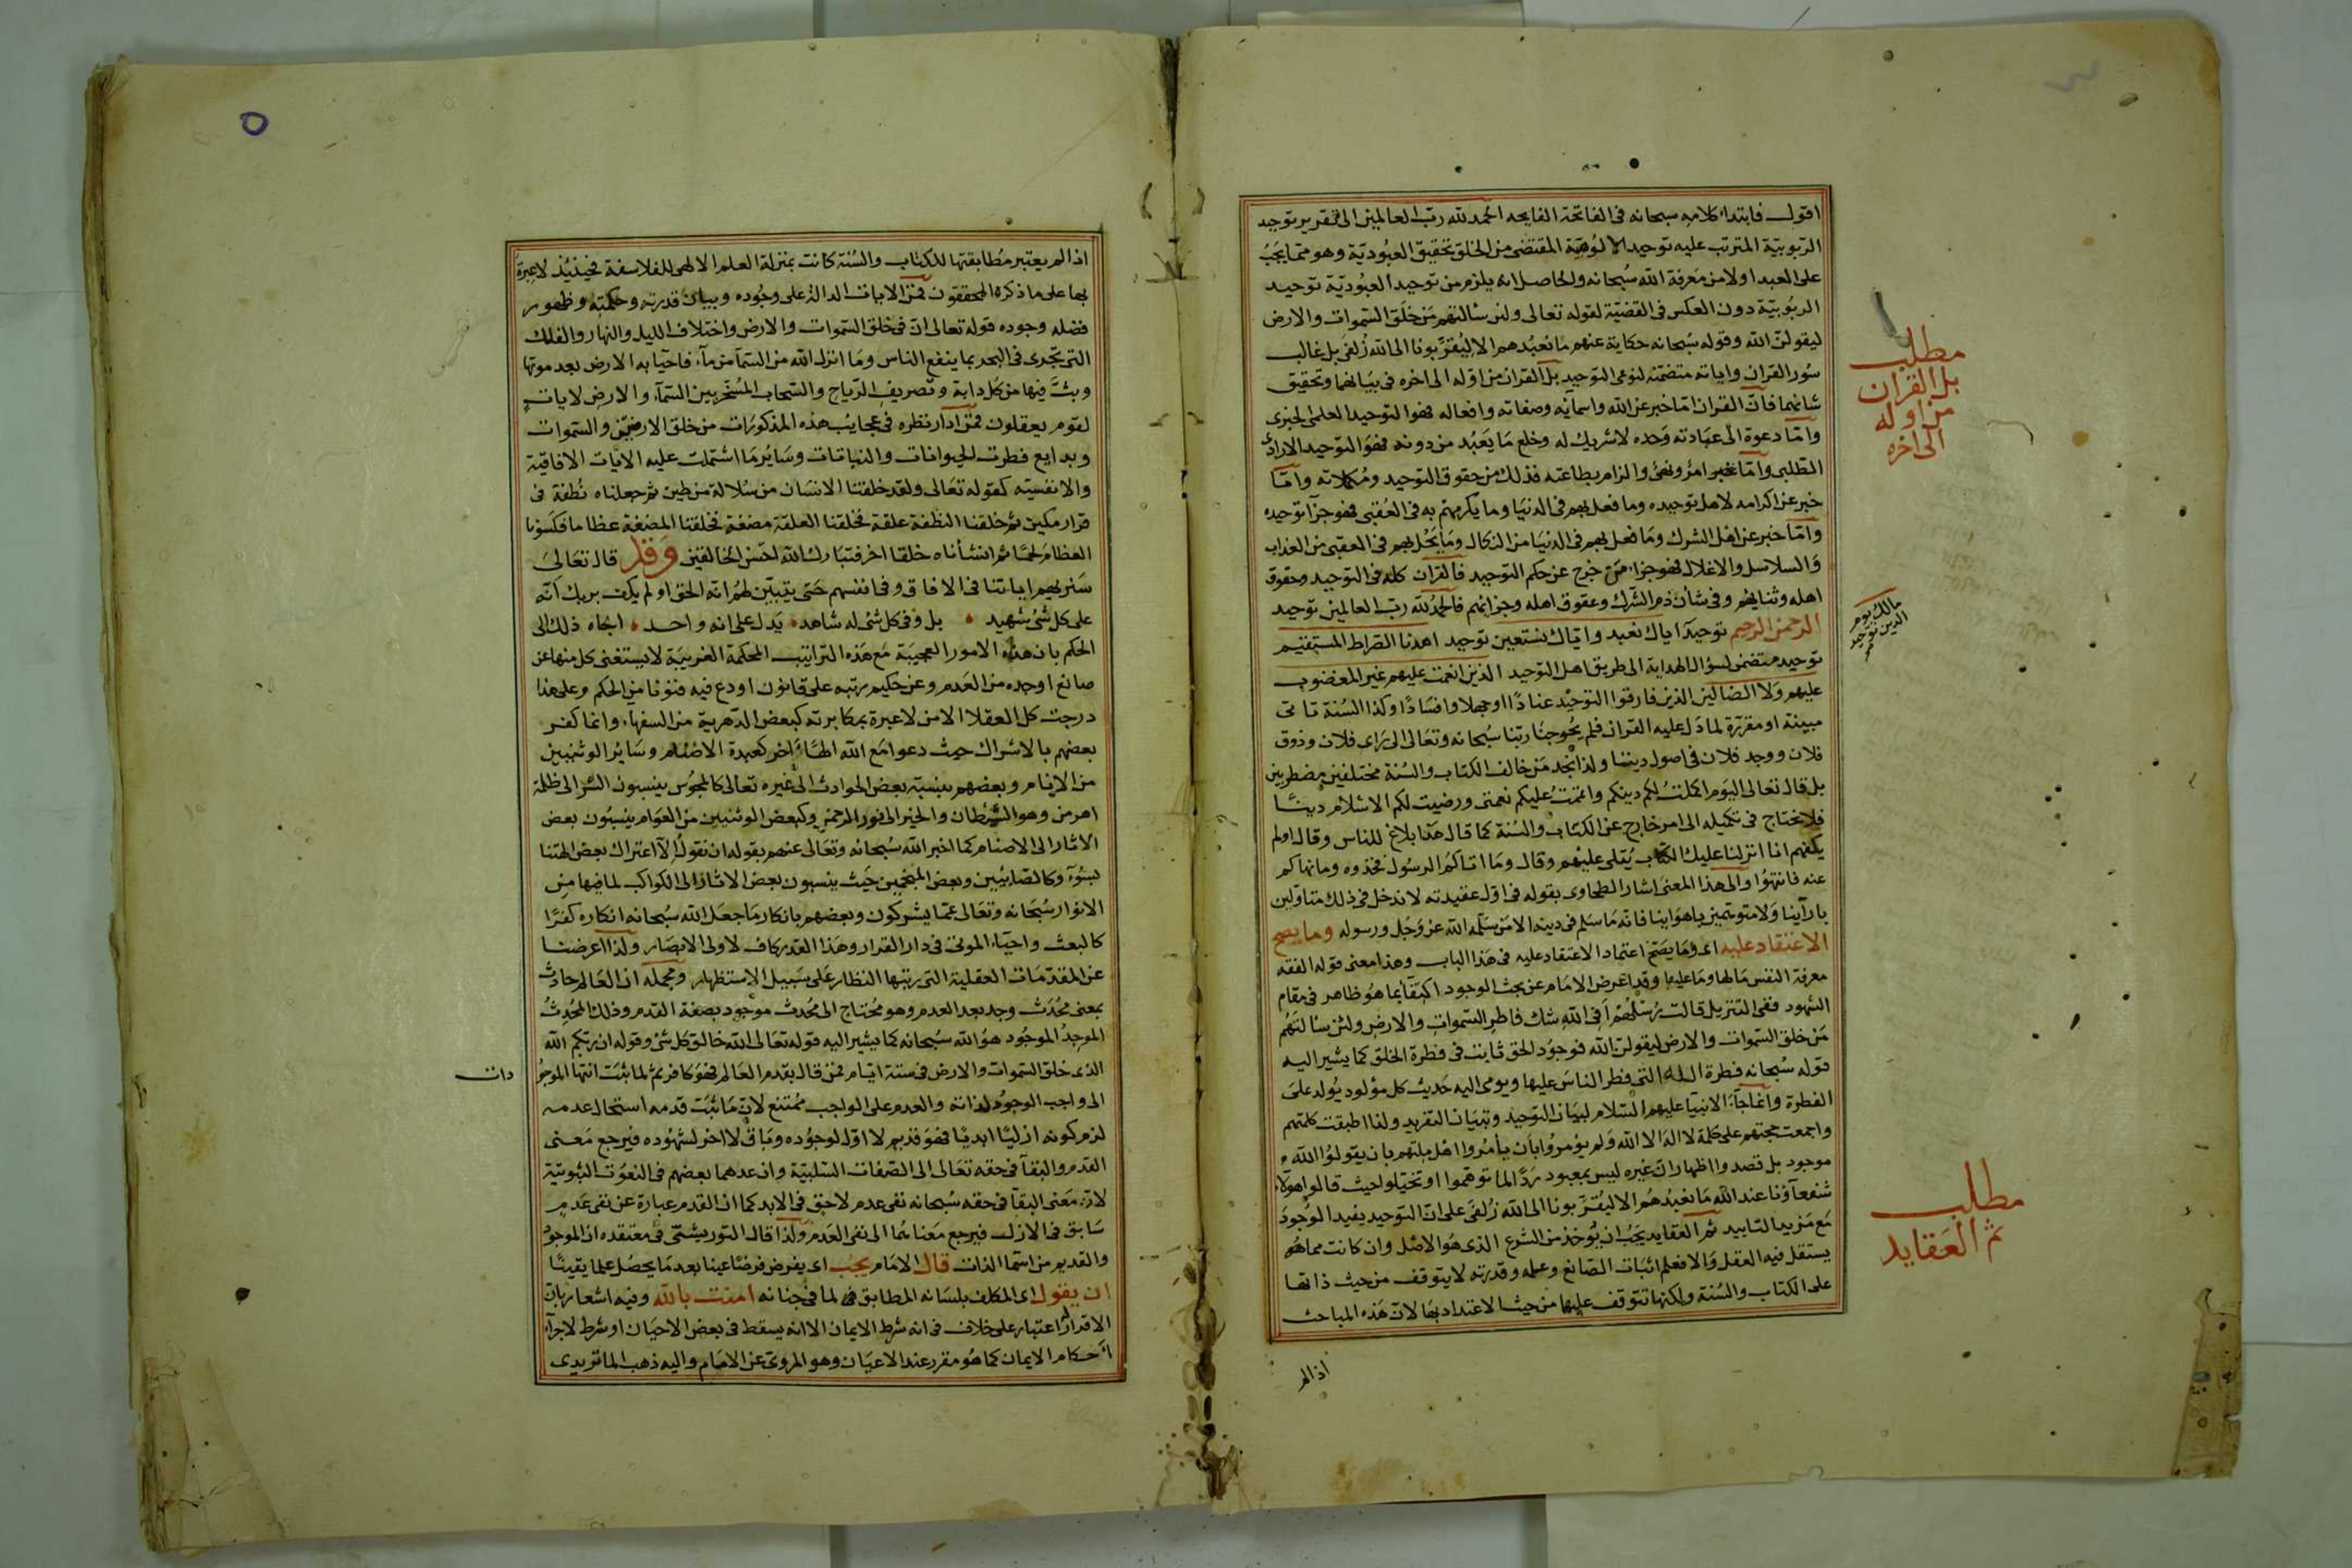 اقول فابتداء كلامه سبحانه فى الفاتحة الفايحه الحمد لله رب العالمين الى تقرير توحيد
الربوبيّة المترتب عليه توحيد الالوهيّة المقتضى من الخلق تحقيق العبوديّة وهو مما يجب
على العبد اولا من معرفة الله سبحانه والحاصل انه يلزم من توحيد العبوديّة توحيد
الربوبيّة دون العكس فى القضيّة لقوله تعالى ولئن سألتهم من خلق السموات والارض
ليقولن الله وقوله سبحانه حكاية عنهم ما نعبدهم الا ليقربونا الى الله زلفى بل غالب
سور القران واياته متضمّنه لنوعى التوحيد بل القران من اوله الى اخره فى بيانهما وتحقيق
شانهما فان القران امّا خبر عن الله واسمائه وصفاته وافعاله فهوا التوحيد العلمى الخبرى
وامّا دعوة الى عبادته وحده لاشريك له وخلع ما يعبد من دونه فهو التوحيد الارادى
الطلبى وامّا امر ونهى والزام بطاعته فذلك من حقوق التوحيد ومكملاته وامّا
خبر عن اكرامه لاهل توحيده وما فعل بهم فى الدنيا وما يكرمهم به فى العقبى فهو جزآ توحيده
وامّا خبر عن اهل الشرك وما فعل بهم فى الدنيا من النكال وما يحل بهم فى العقبى من العذاب
والسلاسل والاغلال فهو جزاء من خرج عن حكم التوحيد فالقران كله فى التوحيد وحقوق
اهله وثنايهم وفى شأن ذم الشرك وعقوق اهله وجزائهم فالحمد لله رب العالمين توحيد
الرحمن الرحيم توحيد اياك نعبد واياك نستعين توحيد اهدنا الصراط المستقيم
توحيد متضمن لسؤال الهداية الى طريق اهل التوحيد الذين انعمت عليهم غير المغضوب
عليهم ولا الضالين الذين فارقوا التوحيد عنادًا اوجهلا وافسادًا وكذا السنة تاتى
مبينة او مقررة لما دل عليه القران فلم يحوجنا ربنا سبحانه وتعالى الى راى فلان وذوق
فلان ووجد فلان فى اصول ديننا ولذا نجد من خالف الكتاب والسنة مختلفين مضطربين
بل قال تعالى اليوم اكملت لكم دينكم واتممت عليكم نعمتى ورضيت لكم الاسلام دينًا
فلا نحتاج فى تكميله الى امر خارج عن الكتاب والسنة كما قال هذا بلاغ للناس وقال اولم
يكفهم انا انزلنا عليك الكتاب يتلى عليهم وقال وما اتاكم الرسول فخذوه وما نهاكم
عنه فانتهوا والى هذا المعنى اشار الطحاوى بقوله فى اول عقيدته لا ندخل فى ذلك متاولين
بارآينا ولا متوهّمين باهواينا فانه ما سلم فى دينه الا من سلّمه الله عز وجل ورسوله وما يصح
الاعتقاد عليه اى وما يصح اعتماد الاعتقاد عليه فى هذا الباب وهذا معنى قوله الفقه
معرفة النفس مالها وما عليها وقد اعرض الامام عن بحث الوجود اكتفآ بما هو ظاهر فى مقام
الشهود ففى التنزيل قالت رسلهم افى الله شك فاطر السموات والارض ولئن سألتهم
من خلق السموات والارض ليقولن الله فوجود الحق ثابت فى فطرة الخلق كما يشير اليه
قوله سبحانه فطرة الله التى فطر الناس عليها ويومى اليه حديث كل مولود يولد على
الفطرة وانماجآء الانبيا عليهم السّلام لبيان التوحيد وتبيان التفريد ولذا اطبقت كلمتهم
واجمعت حجتهم على كلمة لا اله الا الله ولم يؤمروا بان يأمروا اهل ملتهم بان يقولوا الله
موجود بل قصدوا اظهار ان غيره ليس بمعبود ردًّا لما توهّموا وتخيّلوا حيث قالوا هولاء
شفعآؤنا عند الله ما نعبدهم الا ليقربونا الى الله زلفى على ان التوحيد يفيد الوجود
مع مزيد التاييد ثم العقايد يجب ان يوخذ من الشرع الذى هو الاصل وان كانت مماهُو
يستقل فيه العقل والا فعلم اثبات الصانع وعلمه وقدرته لا يتوقف من حيث ذاتها
على الكتاب والسنة ولكنها تتوقف عليها من حيث الاعتداد بها لان هذه المباحث
اذا لم
مطلب
بل القران
من اوله
الى اخره
مالك يوم
الدين توحيد
مطلب
ثم العقايد
٥
اذا لم يعتبر مطابقتها للكتاب والسنة كانت بمنزلة العلم الالهى للفلاسفة فحينئذ لاعبرة
بها على ما ذكره المحققون فمن الايات الدالة على وجوده وبيان قدرته وحكمته وظهور
فضله وجوده قوله تعالى ان فى خلق السموات والارض واختلاف الليل والنهار والفلك
التى تجرى فى البحر بما ينفع الناس وما انزل الله من السمآ من مآء فاحيا به الارض بعد موتها
وبثّ فيها من كل دابة وتصريف الرياح والسحاب المسخر بين السمآء والارض لايات
لقوم يعقلون فمن ادار نظره فى عجايب هذه المذكورات من خلق الارضين والسموات
وبدايع فطرت الحيوانات والنباتات وساير ما اشتملت عليه الايات الافاقية
والانفسيه كقوله تعالى ولقد خلقنا الانسان من سلالة من طين ثم جعلناه نطفة فى
قرار مكين ثم خلقنا النطفة علقة فخلقنا العلقة مضغة فخلقنا المضغة عظاما فكسونا
العظام لحمًا ثم انشأناه خلقا اخر فتبارك الله احسن الخالقين وقد قال تعالى
سنريهم اياتنا فى الافاق وفى انفسهم حتى يتبيّن لهم انه الحق اولم يكف بربك انه
على كل شئ شهيد بل وفى كل شئ له شاهد يدل على انه واحد الجاه ذلك الى
الحكم بان هذه الامور العجيبة مع هذه التراتيب المحكمة الغريبة لا يستغنى كل منها عن
صانع اوجده من العدم وعن حكيم رتبه على قانون اودع فيه فنونا من الحكم وعلى هذا
درجت كل العقلا الا من لاعبرة بمكابرته كبعض الدهرية من السفهاء وانما كفر
بعضهم بالاشراك حيث دعوا مع الله الهًا اخر كعبدة الاصنام وساير الوثنيين
من الانام وبعضهم بنسبة بعض الحوادث الى غيره تعالى كالمجوس ينسبون الشر الى ظلمة
اهرمن وهو الشيطان والخير الى نور الرحمن وكبعض الوثنيين من العوام ينسبون بعض
الاثار الى الاصنام كما اخبر الله سبحانه وتعالى عنهم بقوله ان نقول الا اعتراك بعض الهتنا
بسوء وكالصابيين وبعض المنجمين حيث ينسبون بعض الاثار الى الكواكب لما فيها من
الانوار سبحانه وتعالى عما يشركون وبعضهم بانكار ما جعل الله سبحانه انكاره كفرًا
كالبعث واحياء الموتى فى دار القرار وهذا القدر كاف لاولى الابصار ولذا اعرضنا
عن المقدمات العقلية التى رتبها النظار على سبيل الاستظهار ومجمله ان العالم حادث
بمعنى محدث وجد بعد العدم وهو محتاج الى محدث موجود بصفة القدم وذلك المحدث
الموجد الموجود هو الله سبحانه كما يشير اليه قوله تعالى الله خالق كل شئ وقوله ان ربكم الله
الذى خلق السموات والارض فى ستة ايام فمن قال بقدم العالم فهو كافر ثم لما ثبت انتها الموجو
دات
الى واجب الوجود لذاته والعدم على الواجب ممتنع لان ما ثبت قدمه استحال عدمه
لزم كونه ازليًّا ابديًا فهو قديم لا اول لوجوده وباق لا اخر لشهوده فيرجع معنى
القدم والبقآ فى حقه تعالى الى الصفات السلبيّة وان عدهما بعضهم فى النعوت الثبوتيّة
لان معنى البقآ فى حقه سبحانه نفى عدم لاحق فى الابد كما ان القدم عبارة عن نفى عدم
سابق فى الازل فيرجع معناهما الى نفى العدم ولذا قال التوربشتى فى معتقده ان الموجود
والقديم من اسما الذات قال الامام يجب اى يفرض فرضًا عينا بعد ما يحصل علما يقينًا
ان يقول اى المكلف بلسانه المطابق لما فى جنانه امنت بالله وفيه اشعار بان
الاقرار اعتبار على خلاف فى انه شرط الايمان الا انه يسقط فى بعض الاحيان او شرط لاجرآء
احكام الايمان كما هو مقرر عند الاعيان وهو المروى عن الامام واليه ذهب الماتريدى